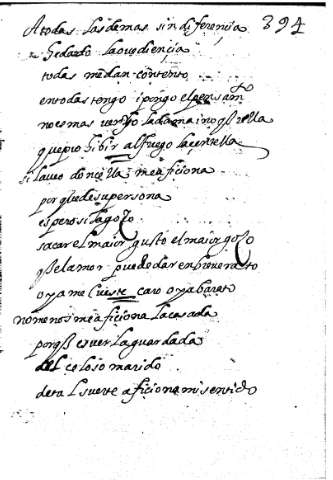 A todas las demas sin diferençia 394
he dado la ovediençia
todas me dan contento
en todas tengo i pongo el pensam.to
no es mas ver yo la dama i no q̃rella
que prohibir al fuego la centella
si la veo donçella me afiçiona
por q̃ de su persona
espero si la goço
sacar el maior gusto el maior goço
q̃ el amor puede dar en breve rato
o ya me cueste caro o ya barato
no menos me afiçiona la casada
porq̃ es ver la guardada
del çeloso marido
de tal suerte afiçiona mi sentido